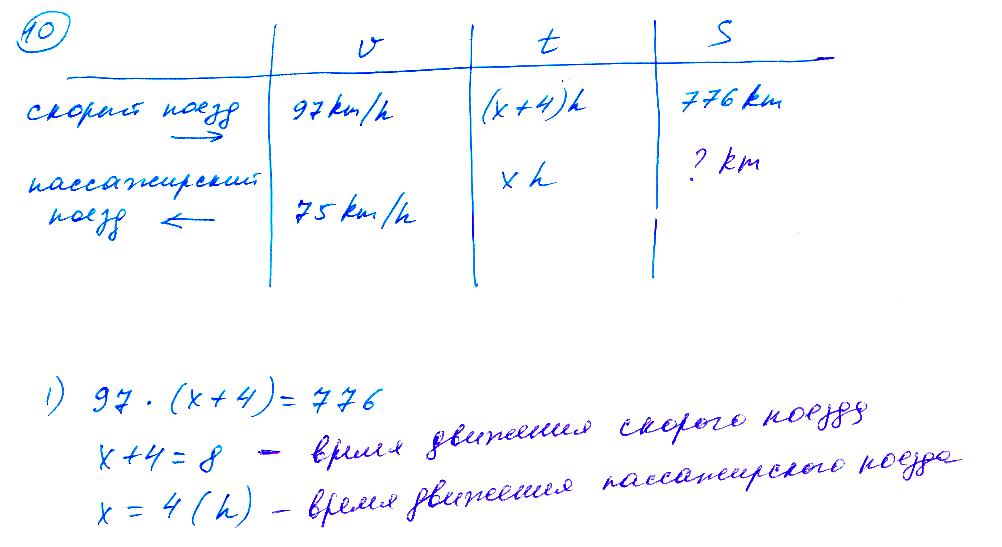 10
v t S
скорый поезд 97 km/h (x+4)h 776 km
→
пассажирский x h ? km
поезд ← 75 km/h
1) 97 · (x+4) = 776
x+4 = 8 – время движения скорого поезду
x = 4 (h) – время движения пассажирского поезда